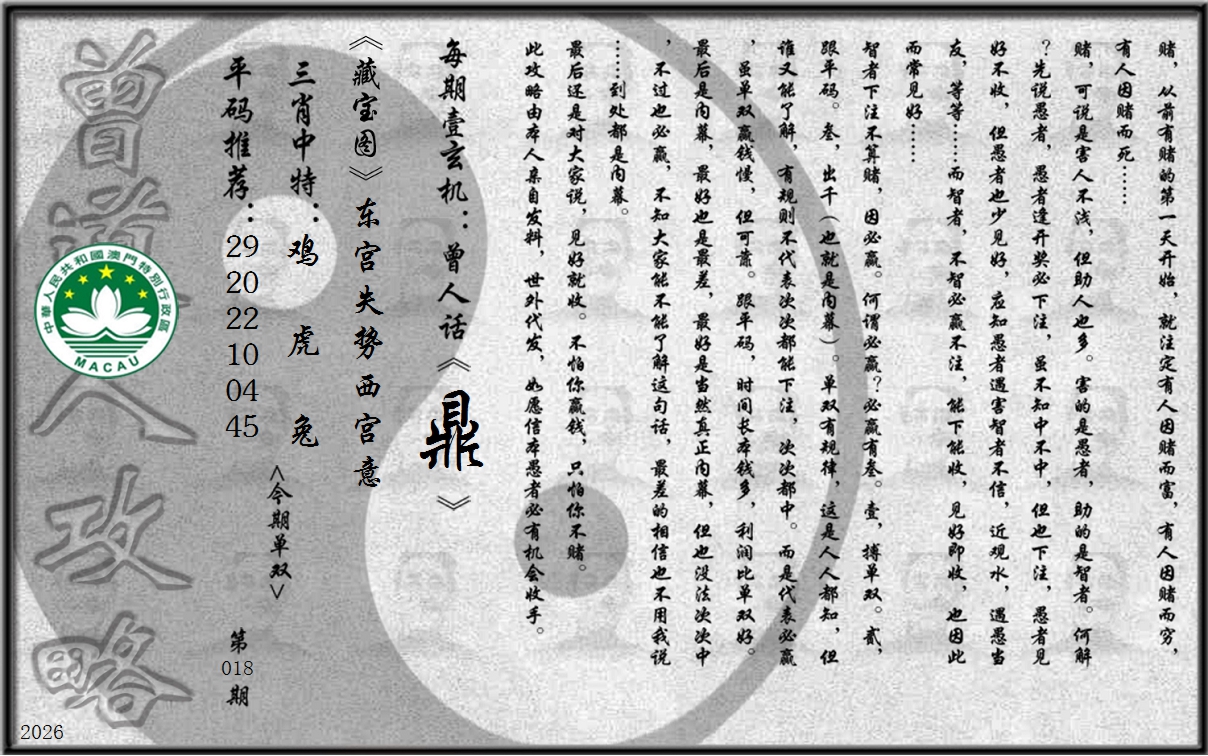 赌，从前有赌的第一天开始，就注定有人因赌而富，有人因赌而穷，
有人因赌而死……
赌，可说是害人不浅，但助人也多。害的是愚者，助的是智者。何解
？先说愚者，愚者逢开奖必下注，虽不知中不中，但也下注，愚者见
好不收，但愚者也少见好，应知愚者遇害智者不信，近观水，遇愚当
友，等等……而智者，不智必赢不注，能下能收，见好即收，也因此
而常见好……
智者下注不算赌，因必赢。何谓必赢？必赢有叁。壹，搏单双。贰，
跟平码。叁，出千（也就是内幕）。单双有规律，这是人人都知，但
谁又能了解，有规则不代表次次都能下注，次次都中。而是代表必赢
，虽单双赢钱慢，但可靠。跟平码，时间长本钱多，利润比单双好。
最后是内幕，最好也是最差，最好是当然真正内幕，但也没法次次中
，不过也必赢，不知大家能不能了解这句话，最差的相信也不用我说
……到处都是内幕。
最后还是对大家说，见好就收。不怕你赢钱，只怕你不赌。
此攻略由本人亲自发料，世外代发，如愿信本愚者必有机会收手。
每期壹玄机：曾人话《鼎》
《藏宝图》东宫失势西宫意
三肖中特：鸡 虎 兔
<今期单双>
平码推荐：29 20 22 10 04 45
第018期
曾道人攻略
中華人民共和國澳門特別行政區
MACAU
2026